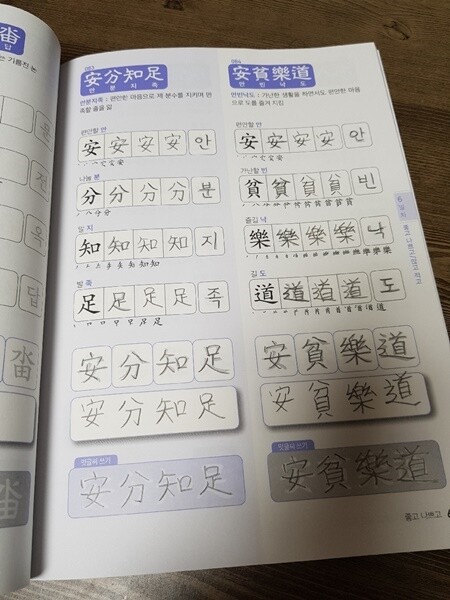 畓
답
는 기름진 논
답
畓
畓
083
安分知足
안분지족
안분지족 : 편안한 마음으로 제 분수를 지키며 만
족할 줄을 앎
편안할 안
安 安 安 安 안
나눌 분
分 分 分 分 분
알 지
知 知 知 知 지
발 족
足 足 足 足 족
安 分 知 足
安 分 知 足
멋글씨 쓰기
安 分 知 足
084
安貧樂道
안빈낙도
안빈낙도 : 가난한 생활을 하면서도 편안한 마음
으로 도를 즐겨 지킴
편안할 안
安 安 安 安 안
가난할 빈
貧 貧 貧 貧 빈
즐길 낙
樂 樂 樂 樂 낙
길 도
道 道 道 道 도
安 貧 樂 道
安 貧 樂 道
멋글씨 쓰기
安 貧 樂 道
좋고 나쁘고